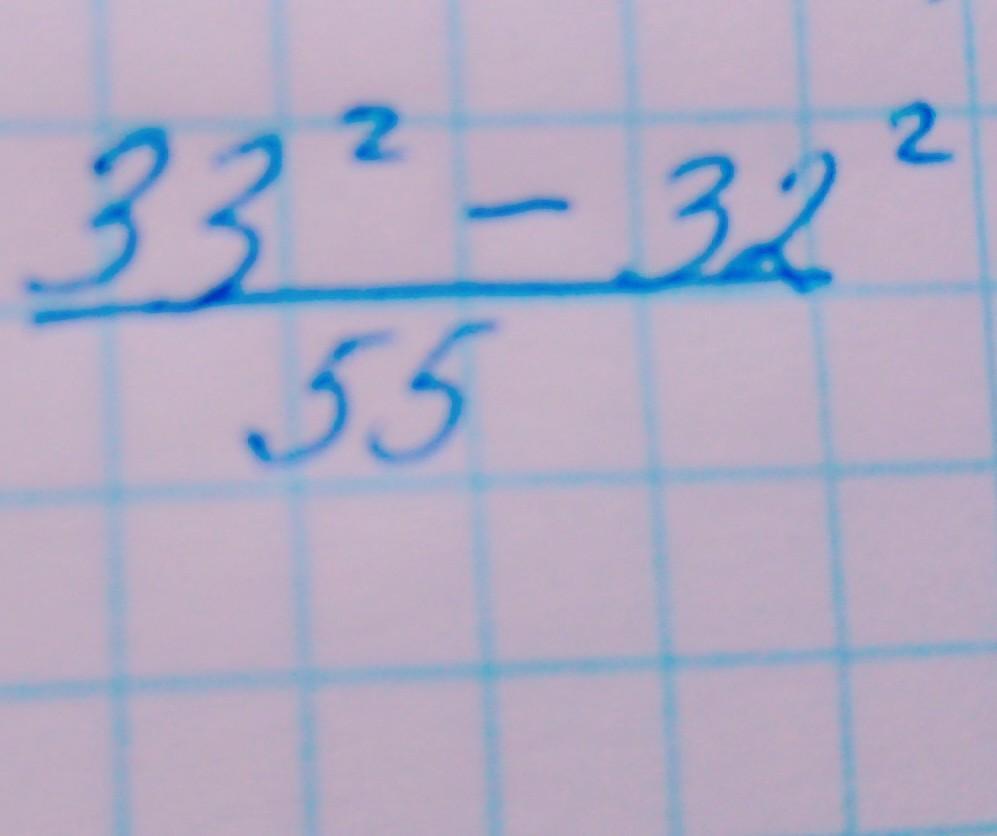 33² - 32²
55